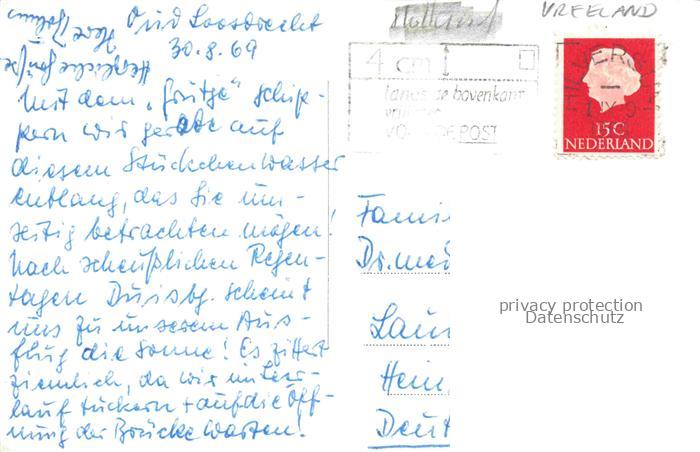 Oud Loosdrecht
30.8.69
Mit dem „Grutje" schip-
pern wir gerade auf
diesem Stückchen Wasser
entlang, das Sie um-
seitig betrachten mögen!
Nach scheußlichen Regen-
tagen Duisbg. scheint
uns zu unserem Aus-
flug die Sonne! Es zittert
ziemlich, da wir im Leer-
lauf tuckern + auf die Öff-
nung der Brücke warten!
Herzliche Grüße
Holland
VREELAND
4 cm
langs de bovenkant
VOOR DE POST
HILVERSUM
15C
NEDERLAND
Famil
Dr. med
Laun
Hein
Deut
privacy protection
Datenschutz